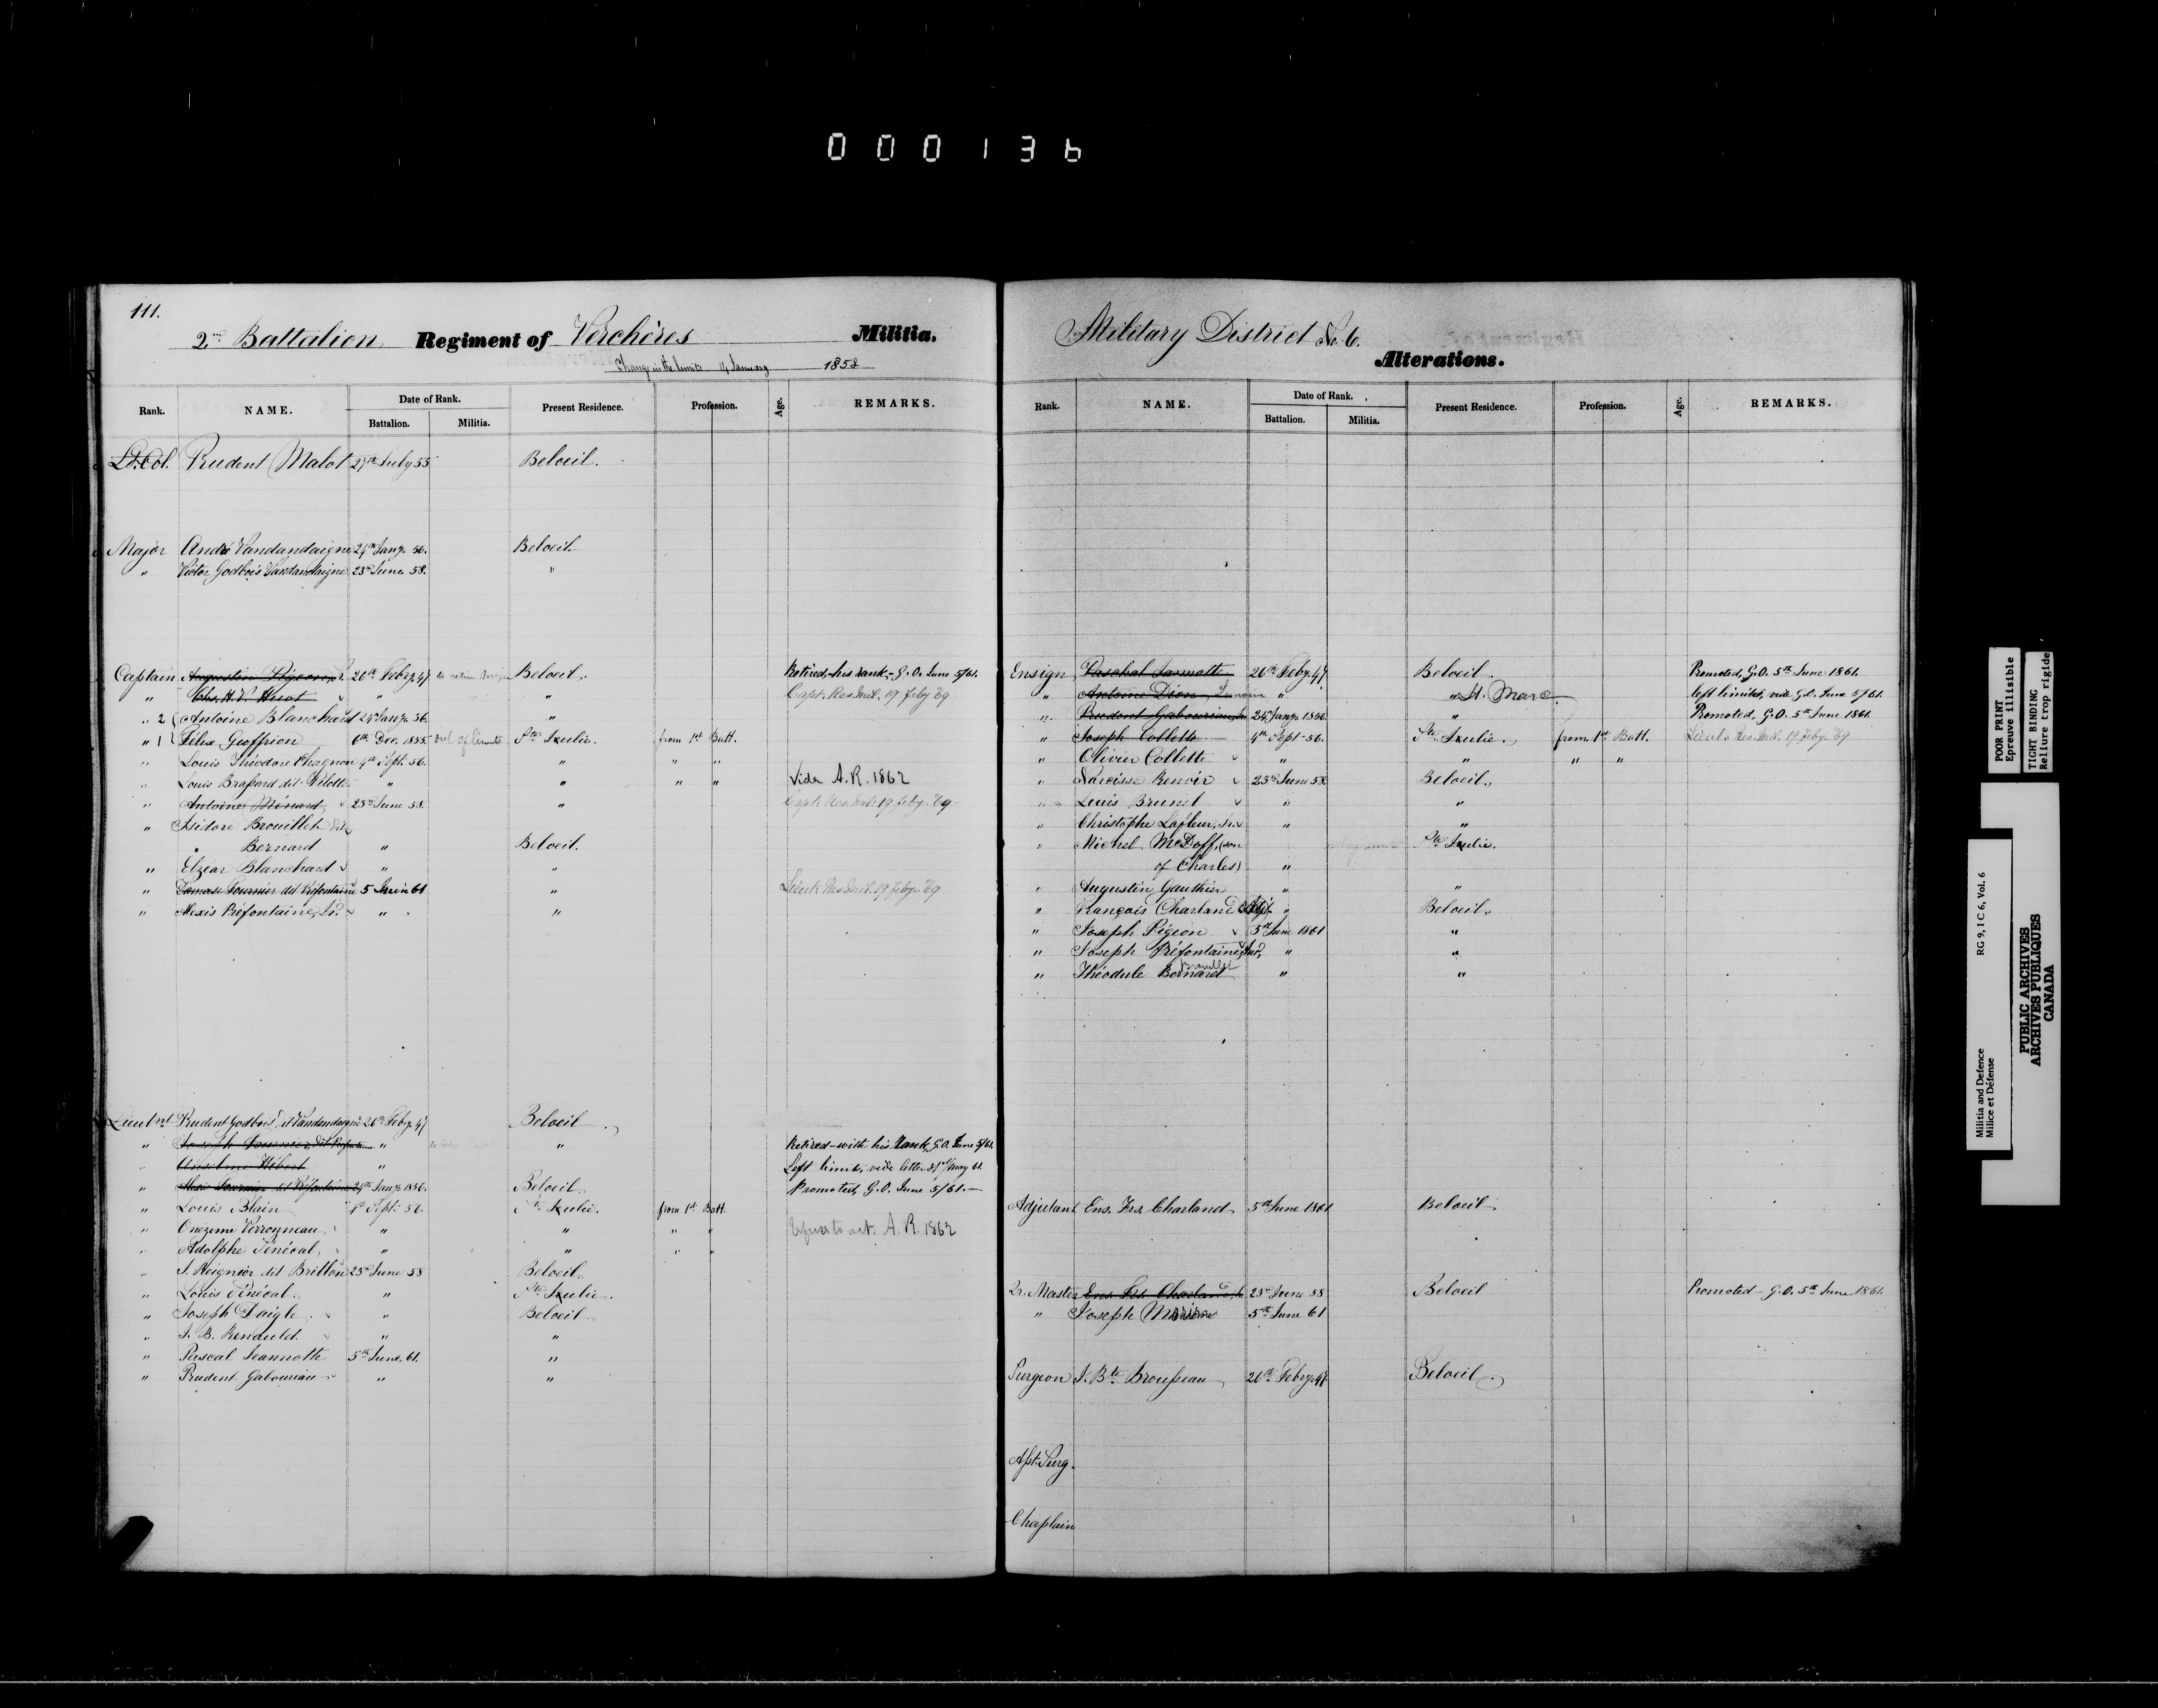 000136
111.
2nd Battalion Regiment of Verchères Militia.
Change in the limits 14 January 1858
Rank. NAME. Date of Rank. Present Residence. Profession. Age. REMARKS.
Battalion. Militia.
Lt. Col. Prudent Malot 27th July 55 Beloeil.
Major André Vandandaigne 24th Jany. 56. Beloeil.
" Victor Godbois Vandandaigne 23rd June 58. "
Captain Augustin Pigeon, 26th Feby. 47 Beloeil. Retired, his rank, G.O. June 5/61.
" Chs. H. V. Huot " " Capt. Res. Mil. 19 Feby. '69
" 2 Antoine Blanchard 24th Jany. 56. "
" 1 Félix Geoffrion 6th Dec. 1855. out of limits Ste Julie. from 1st Batt.
" Louis Théodore Chagnon 4th Sept. 56. " " "
" Louis Brassard dit Pilotte " " " " Vide A.R. 1862
" Antoine Ménard 23rd June 58. " Capt. Res. Mil. 19 Feby. '69
" Isidore Brouillet dit
Bernard " Beloeil.
" Elzear Blanchard " "
" Tomase Fournier dit Préfontaine 5 June 61 " Lieut. Res. Mil. 19 Feby. '69
" Alexis Préfontaine, " "
Lieutnt Prudent Godbois dit Vandandaigne 26th Feby. 47 Beloeil.
" Joseph Fournier, dit " " Retired with his Rank, G.O. June 5/61.
" Anselme Hébert " Left limits, vide letter 31st May 61.
" Alexis Fournier dit Préfontaine 24th Jany. 1856. Beloeil. Promoted, G.O. June 5/61.
" Louis Blain 4th Sept. 56. Ste Julie. from 1st Batt.
" Onezime Verronneau " " " " Refuses to act. A.R. 1862
" Adolphe Sénécal " " " "
" J. Reignier dit Brillon 23rd June 58 Beloeil.
" Louis Sénécal. " Ste Julie.
" Joseph Daigle " Beloeil.
" J. B. Renauld. " "
" Pascal Jeannotte 5th June. 61. "
" Prudent Gaboureau " "
Military District No. 6.
Alterations.
Rank. NAME. Date of Rank. Present Residence. Profession. Age. REMARKS.
Battalion. Militia.
Ensign Paschal Jannotte 26th Feby. 47 Beloeil. Promoted, G.O. 5th June 1861.
" Antoine Dion, " " St. Marc left limits, vide G.O. June 5/61.
" Prudent Gaboureau, 24th Jany. 1856. " Promoted, G.O. 5th June 1861.
" Joseph Collette 4th Sept. 56. Ste Julie. from 1st Batt. Lieut. Res. Mil. 19 Feby. '69
" Olivier Collette " " " "
" Narcisse Renoir 23rd June 58. Beloeil.
" Louis Brunet " "
" Christophe Lafleur, " "
" Michel McDoff, (son Ste Julie.
of Charles) "
" Augustin Gauthier " "
" François Charland Adj. " Beloeil.
" Joseph Pigeon 5th June 1861 "
" Joseph Préfontaine, " "
" Théodule Bernard Brouillet " "
Adjutant Ens. Frs. Charland 5th June 1861 Beloeil.
Qr. Master Ens. Frs. Charland, 23rd June 58 Beloeil Promoted - G.O. 5th June 1861.
" Joseph Morin 5th June 61
Surgeon J. Bte Brousseau 26th Feby. 47 Beloeil.
Asst. Surg.
Chaplain
POOR PRINT
Epreuve illisible
TIGHT BINDING
Reliure trop rigide
Militia and Defence RG 9, I C 6, Vol. 6
Milice et Défense
PUBLIC ARCHIVES
ARCHIVES PUBLIQUES
CANADA